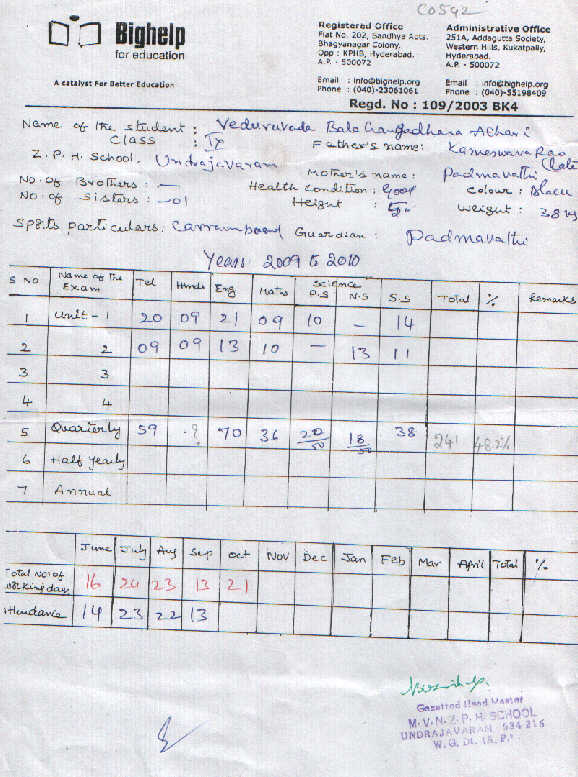 C0592
Bighelp
for education
A catalyst For Better Education
Registered Office
Flat No. 202, Sandhya Apts.
Bhagyanagar Colony,
Opp : KPHB, Hyderabad.
A.P. - 500072
Email : info@bighelp.org
Phone : (040)-23061061
Administrative Office
251A, Addagutta Society,
Western Hills, Kukatpally,
Hyderabad.
A.P. - 500072
Email : info@bighelp.org
Phone : (040)-55198409
Regd. No : 109/2003 BK4
Name of the student : Veduruvada Bala Gangadhara Achari
Class : IX Father's name: Kameswara Rao (Late
Z.P.H School. Undrajavaram Mother's name : Padmavathi
No. of Brothers : — Health Condition : Good Colour : Black
No. of Sisters : - 01 Height : 5. Weight : 38
Sports particulars. Carramboard Guardian : Padmavathi
Years 2009 to 2010
S No Name of the Exam Tel Hindi Eng Mats Science P.S N.S S.S Total % Remarks
1 Unit - 1 20 09 21 09 10 — 14
2 2 09 09 13 10 — 13 11
3 3
4 4
5 Quarterly 59 70 36 20/50 18/50 38 241 48.2%
6 Half Yearly
7 Annual
June July Aug Sep Oct Nov Dec Jan Feb Mar April Total %
Total No. of working days 16 24 23 13 21
Attendance 14 23 22 13
Gazetted Head Master
M.V.N.Z.P.H. SCHOOL
UNDRAJAVARAM 534 216
W.G. Dt.